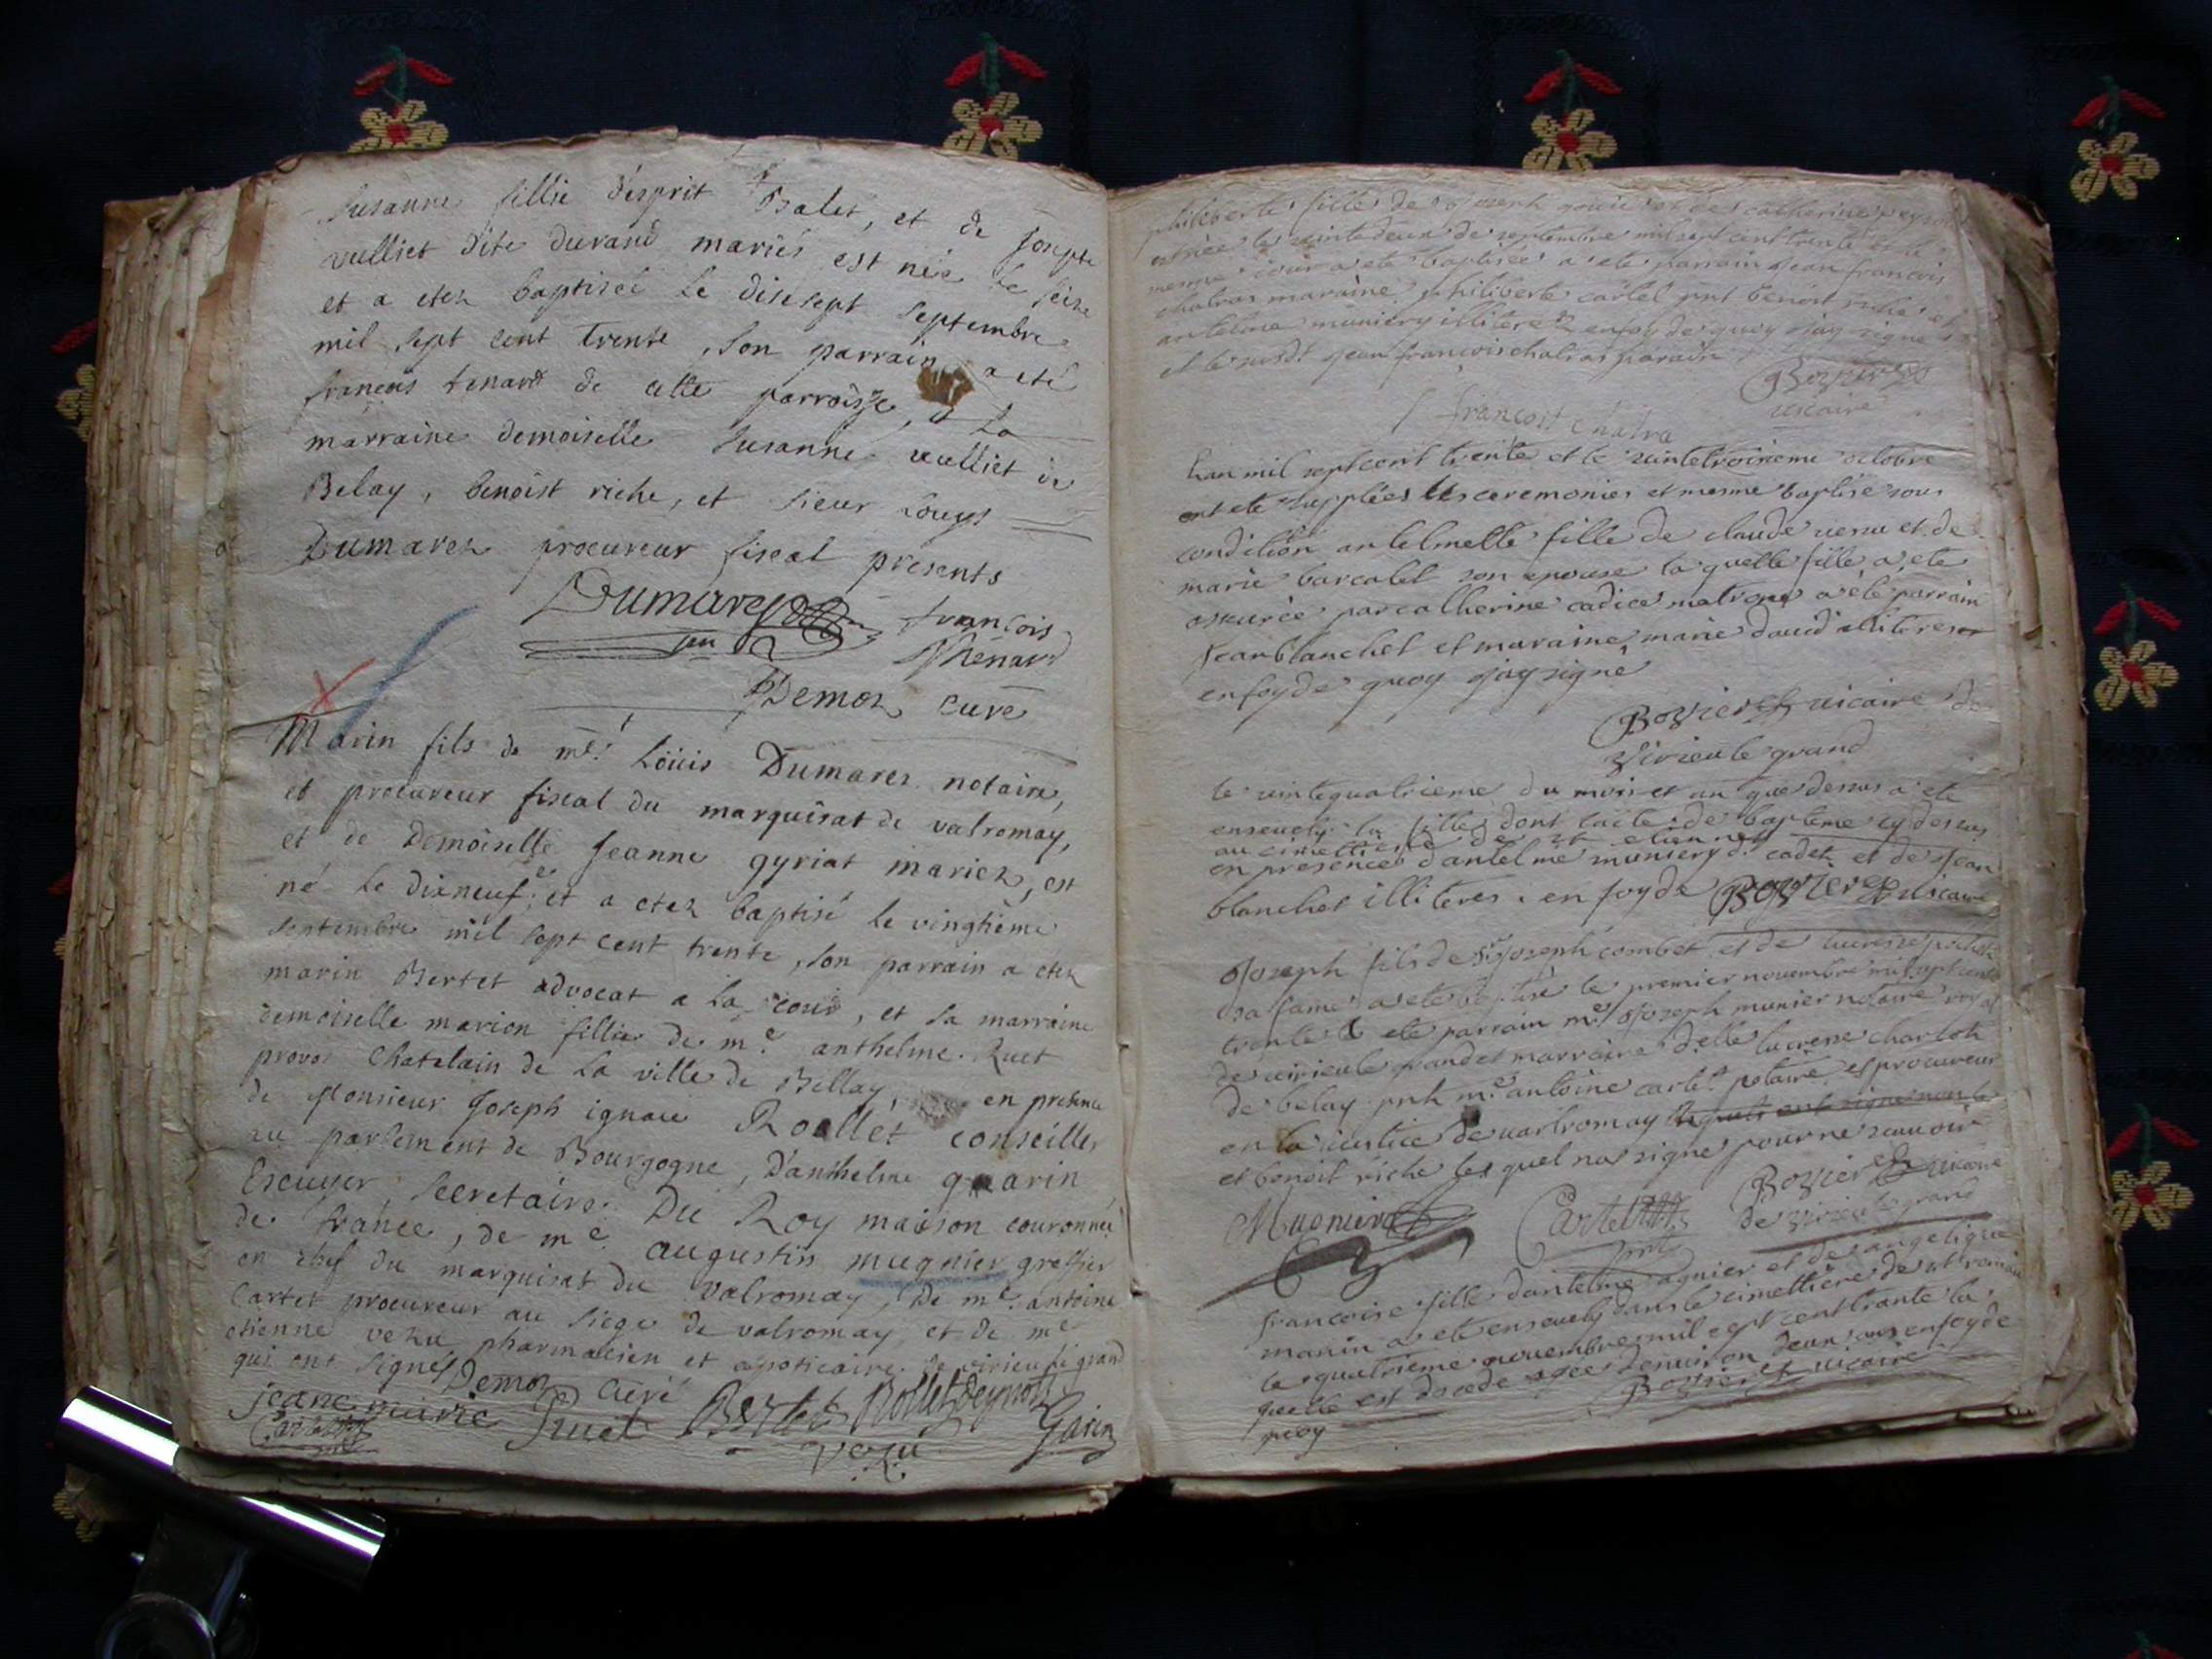 Susanne fillie d'esprit Balet, et de Josepte
vulliet dite durand mariés est née le seize
et a etez baptisée le dixsept septembre
mil sept cent trente, son parrain a eté
françois tenard de cette parroisse, et la
marraine demoiselle Susanne vulliet de
Belay, benoist riche, et sieur Louys
Dumarez procureur fiscal presents
Dumarez
françois
thenard
Demoz curé
Marin fils de me. Loüis Dumarez notaire,
et procureur fiscal du marquisat de valromay,
et de Demoiselle Jeanne gyriat mariez, est
né le dixneuf, et a etez baptisé le vingtième
septembre mil sept cent trente, son parrain a etez
marin Bertet advocat a la cour, et sa marraine
demoiselle marion fillie de me. anthelme Ruet
provos Chatelain de la ville de Bellay, en presence
de Monsieur Joseph ignace Rollet conseiller
au parlement de Bourgogne, d'anthelme guarin
Escuyer, Secretaire Du Roy maison couronne
de france, de me. augustin mugnier greffier
en chef du marquisat du valromay, de me. antoine
Cartet procureur au siege de valromay, et de me
etienne vezu pharmacien et apoticaire de virieu le grand
qui ont signes Demoz Curé
jeane marie Ruet Bertet Rollet
Vezu Garin
philiberte fille de Joseph et de catherine
est née le vintedeux de septembre mil sept cent trente et le
mesme iour a ete baptisée a ete parrain Jean francois
chatras maraine philiberte cartet pnt benoit riche et
antelme muniery illiteres enfoy de quoy iay signe
et le susdt Jean francois chatras parain
Bozier
vicaire
françois Chatra
Lan mil septcent trente et le vintetroisieme octobre
ont ete supplées les ceremonies et mesme baptise sous
condition antelmette fille de claude vesu et de
marie barcatel son epouse la quelle fille a ete
assurée par catherine cadice matrone a été parrain
Jean blanchet et maraine marie david illiteres
enfoy de quoy Jay signé
Bozier vicaire de
Virieu le grand
le vintequatrieme du mois et an que dessus a ete
ensevely la fille dont lacte de bapteme cy dessus
au cimettiere de st etienne
en presence dantelme muniery dt cadet et de Jean
blanchet illiteres. en foy de Bozier vicaire
Joseph fils de sr Joseph combet et de lucresse
sa fame a ete baptisé le premier novembre mil sept cent
trente a ete parrain me Joseph munier notaire royal
de virieu le grand et marraine delle lucresse charlot
de belay pnt me antoine cartet notaire et procureur
en la iustice de varlromay
et benoit riche lequel na signe pour ne scavoir
Mugnier Cartet Bozier vicaire
de virieu le grand
francoise fille dantelme agnier et de angelique
manin a ete ensevely dans le cimettiere de st romain
le quatrieme novembre mil sept cent trante la
quelle est decede agée denviron deux ans enfoy de
quoy Bozier vicaire